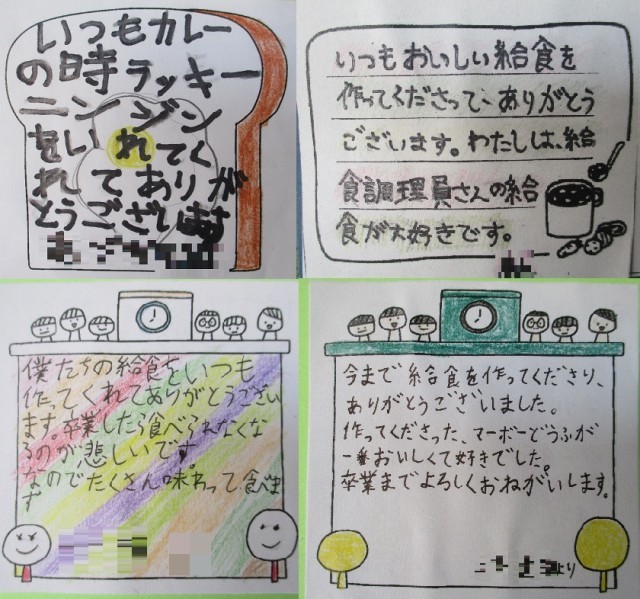 いつもカレー
の時ラッキー
ニンジン
をいれてく
れてありが
とうございます
いつもおいしい給食を
作ってくださって、ありがとう
ございます。わたしは、給
食調理員さんの給
食が大好きです。
僕たちの給食をいつも
作ってくれてありがとうござい
ます。卒業したら食べられなくな
るのが悲しいです。
なのでたくさん味わって食べま
す
今まで給食を作ってくださり、
ありがとうございました。
作ってくださった、マーボーどうふが
一番おいしくて好きでした。
卒業までよろしくおねがいします。
より